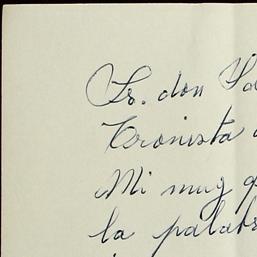 Sr. don Sa
Cronista
Mi muy q
la palabr